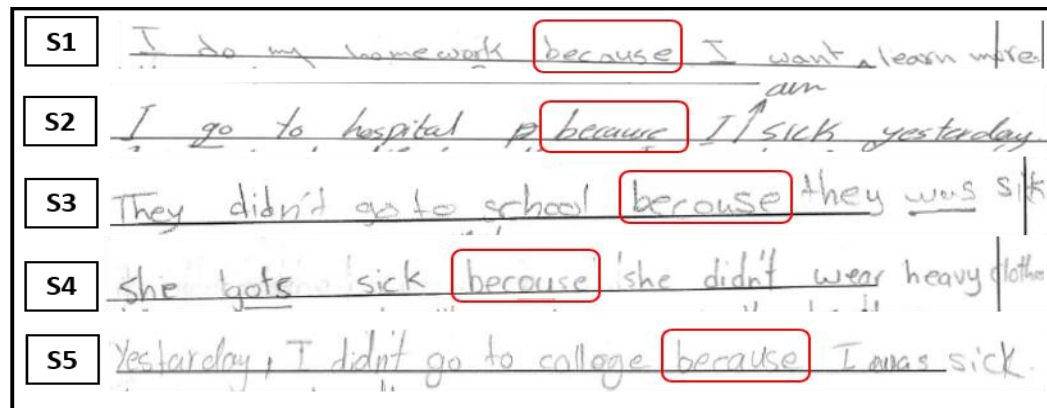 S1 I do my homework because I want learn more.
am
S2 I go to hospital because I sick yesterday.
S3 They didn't go to school becouse they was sick
S4 she gots sick becouse she didn't wear heavy clothes
S5 Yestarday, I didn't go to colloge because I was sick.